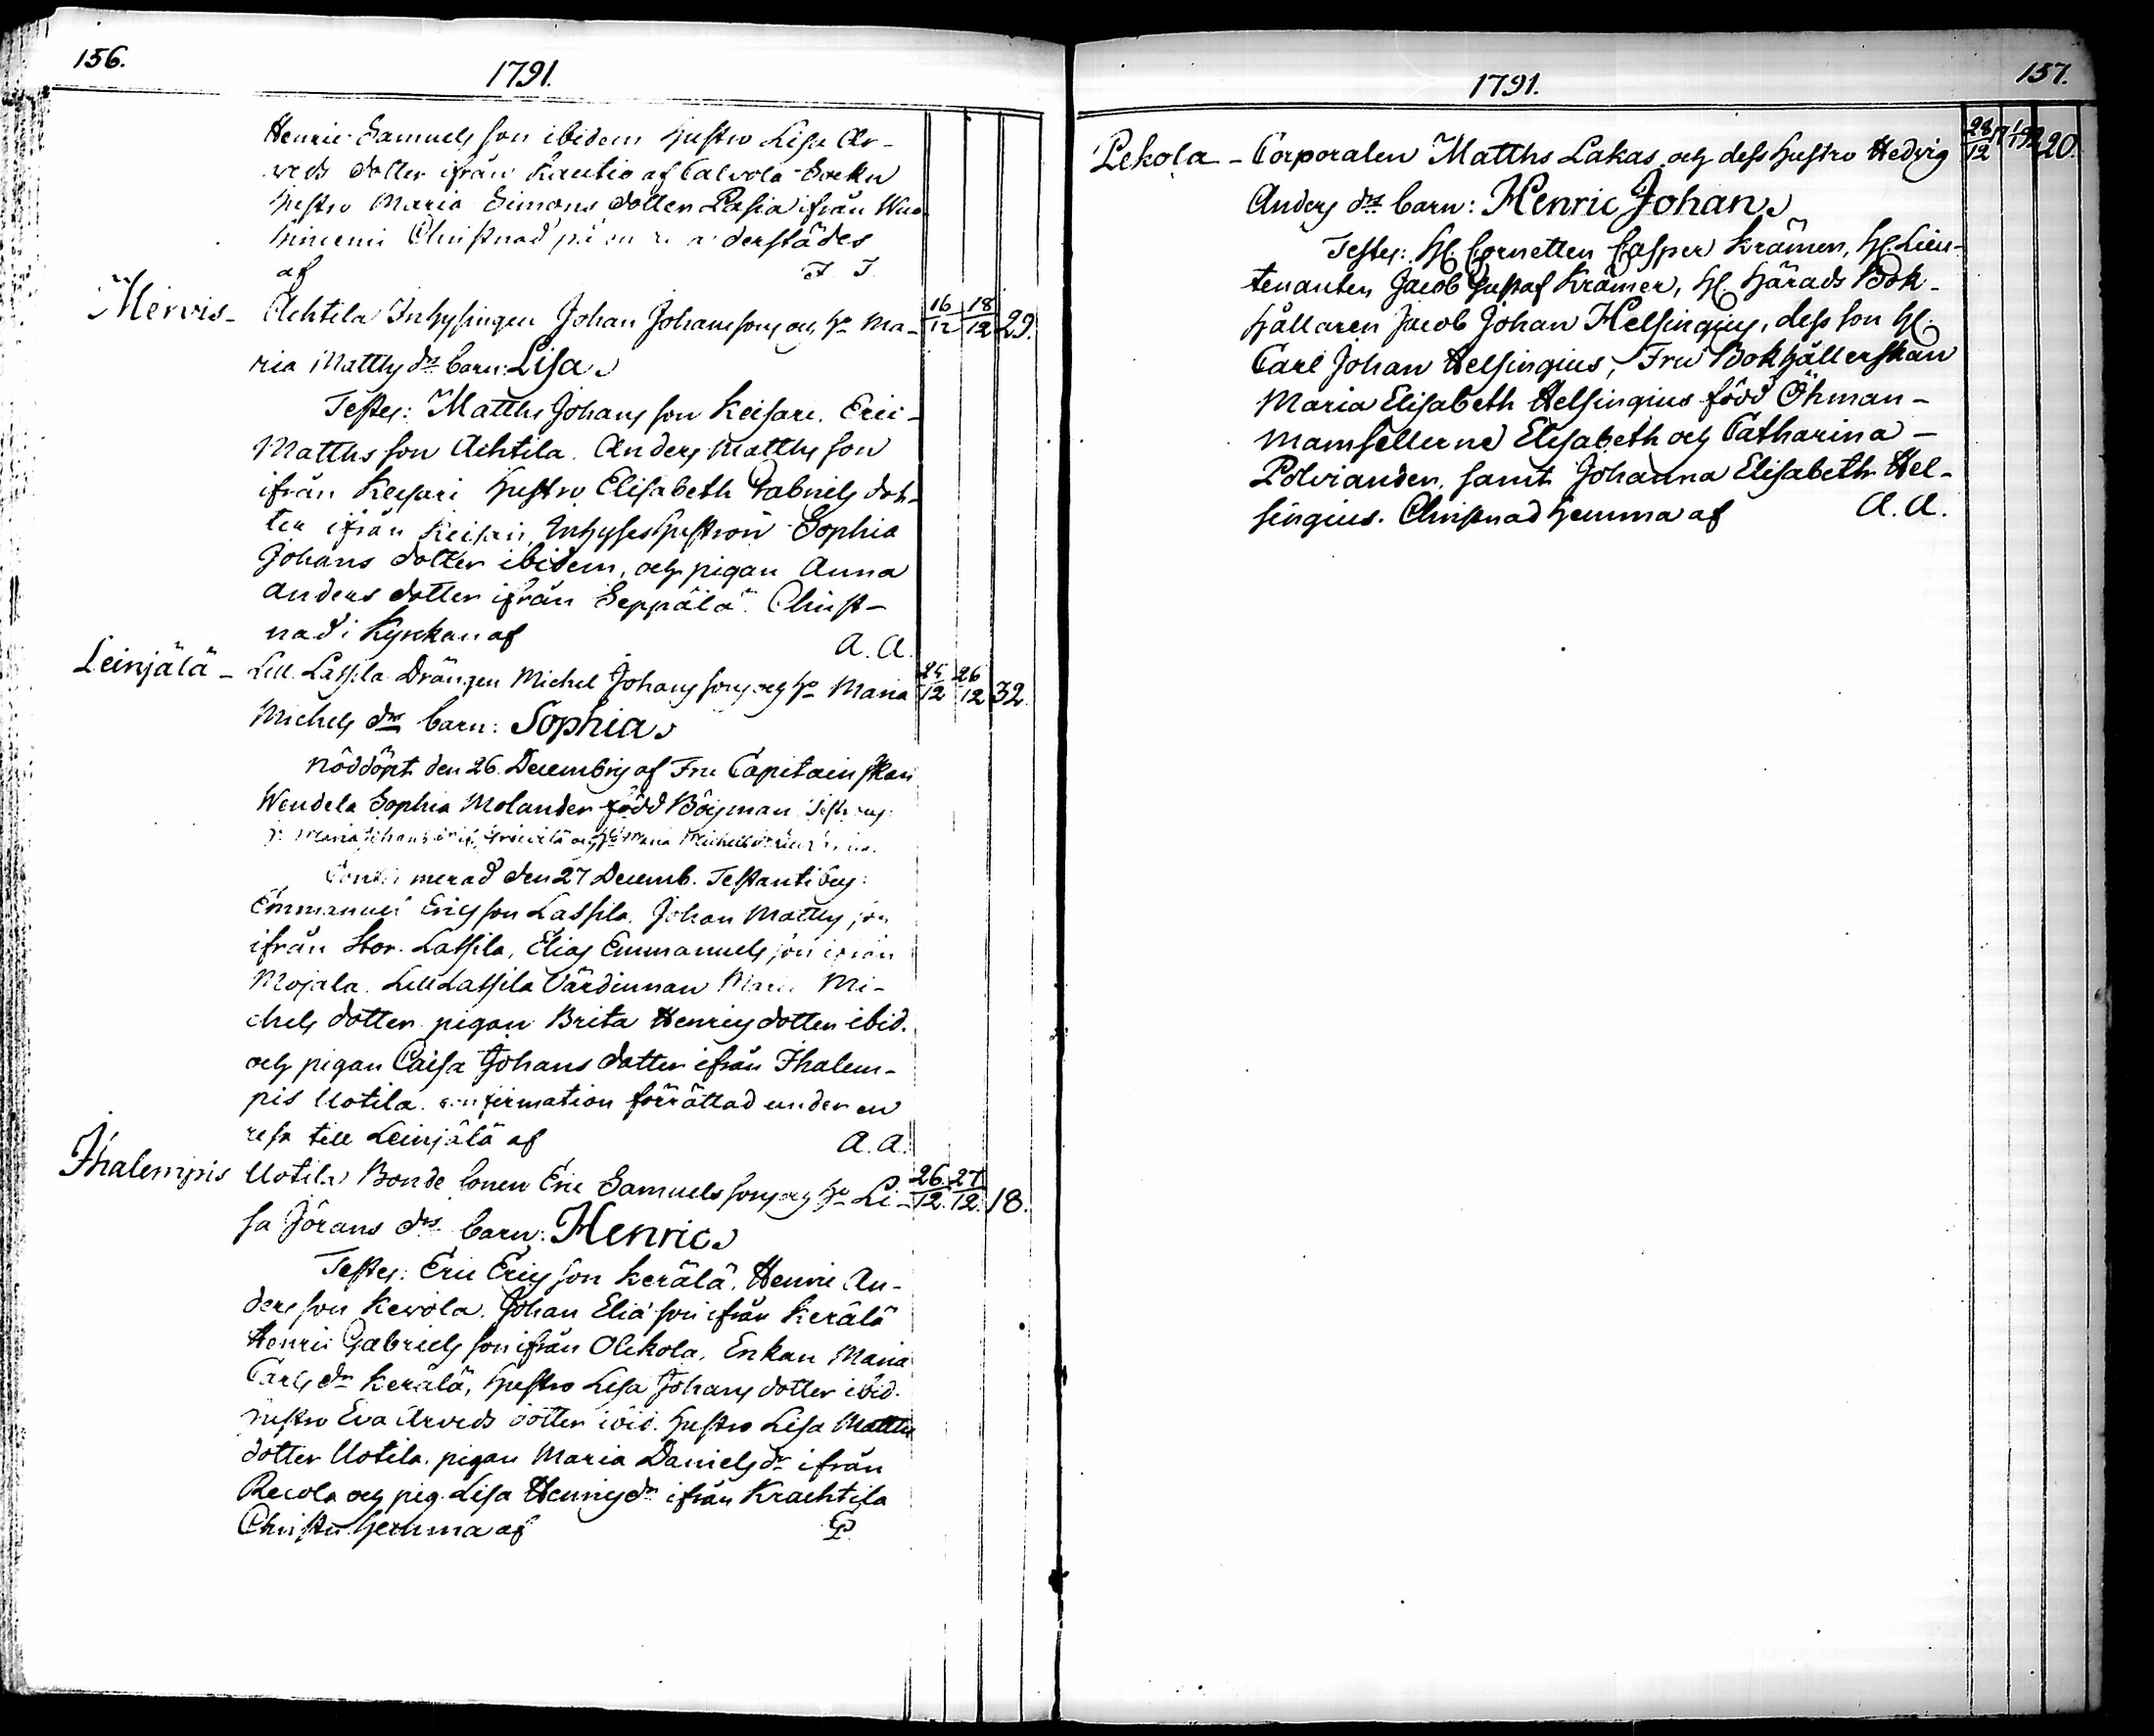 156.
1791.
Henric Samuels son ibidem hustro Lisa Ar-
weds dotter ifrån Kautio af Calvola Sockn
hustro Maria Simons dotter Pasia ifrån
Christnad derstädes
af J. J.
Mervis- Achtila Inhysingen Johan Johanssons och ho Ma- 16/12 18/12 29.
ria Matths drs barn: Lisa.
Testes: Matths Johans son Keisari. Eric
Matths son Achtila. Anders Matths son
ifrån Keisari hustro Elisabeth Gabriels dot-
ter ifrån Keisari, Inhyses hustron Sophia
Johans dotter ibidem, och pigan Anna
Anders dotter ifrån Seppälä. Christ-
nad i Kyrckan af A. A.
Leinjälä- Lill Lassila Drängen Michel Johans sons och ho Maria 25/12 26/12 32.
Michels drs barn: Sophia.
nöddöpt den 26. Decembris af Fru Capitainskan
Wendela Sophia Molander född Böijman
Maria Johans och Maria Michels
merad den 27 Decemb. Testantibus:
Emmanuel Erics son Lassila. Johan Matths son
ifrån Stor. Lassila, Elias Emmanuels son ifrån
Mojala. Lill Lassila Värdinnan Maria Mi-
chels dotter pigan Brita Henrics dotter ibid.
och pigan Caisa Johans dotter ifrån Ihalem-
pis Uotila. confirmation förrättad under en
resa till Leinjälä af A. A.
Ihalempis Uotila Bonde sonen Eric Samuels sons och ho Li- 26/12. 27/12. 18.
sa Jörans drs barn: Henric.
Testes: Eric Erics son Kerälä. Henric An-
ders son Kewola. Johan Elia son ifrån Kerälä
Henric Gabriels son ifrån Olckola. Enkan Maria
Carls dr Kerälä, hustro Lisa Johans dotter ibid.
hustro Eva Arveds dotter ibid. hustro Lisa Matths
dotter Uotila. pigan Maria Daniels dr ifrån
Recola och pig. Lisa Henrics dr ifrån Krachtila
Christn. hemma af
1791.
157.
Lekola - Corporalen Matths Lakas och dess hustro Hedvig 28/12 17 1/1 92 20.
Anders drs barn: Henric Johan.
Testes: Hl. Cornetten Casper Krämer, Hl. Lieu-
tenanten Jacob Gustaf Krämer, Hl. Härads Bok-
hållaren Jacob Johan Helsingius, dess son Hl.
Carl Johan Helsingius, Fru Bokhållerskan
Maria Elisabeth Helsingius född Öhman-
mamsellerne Elisabeth och Catharina -
Polviander, samt Johanna Elisabeth Hel-
singius. Christnad hemma af A. A.